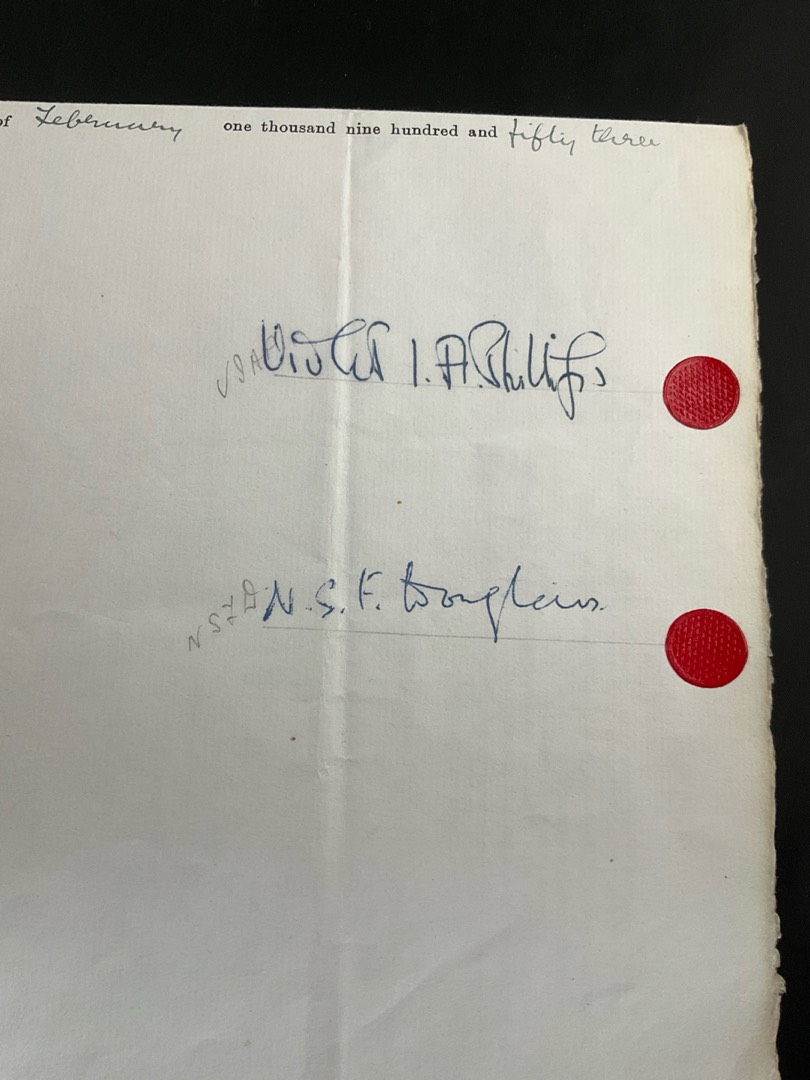 of February one thousand nine hundred and fifty three
Violet I. A. Phillips
N S F D N. S. F. Douglas.